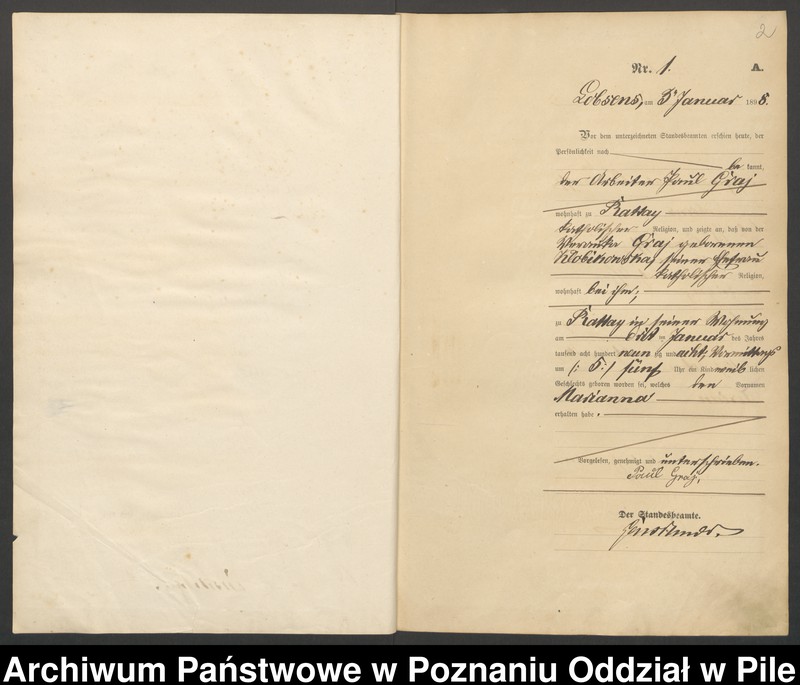 2
Nr. 1. A.
Lobsens, am 3. Januar 1898.
Vor dem unterzeichneten Standesbeamten erschien heute, der
Persönlichkeit nach
be kannt,
der Arbeiter Paul Graj
wohnhaft zu Rattay
katholischer Religion, und zeigte an, daß von der
Graj geborenen
seiner Ehefrau
katholischer Religion,
wohnhaft bei ihm,
zu Rattay in seiner Wohnung
am Januar des Jahres
tausend acht hundert neun zig und acht, Vormittags
um (: 5 :) fünf Uhr ein Kind weib lichen
Geschlechts geboren worden sei, welches den Vornamen
Marianna
erhalten habe.
Vorgelesen, genehmigt und unterschrieben.
Paul Graj,
Der Standesbeamte.
Archiwum Państwowe w Poznaniu Oddział w Pile